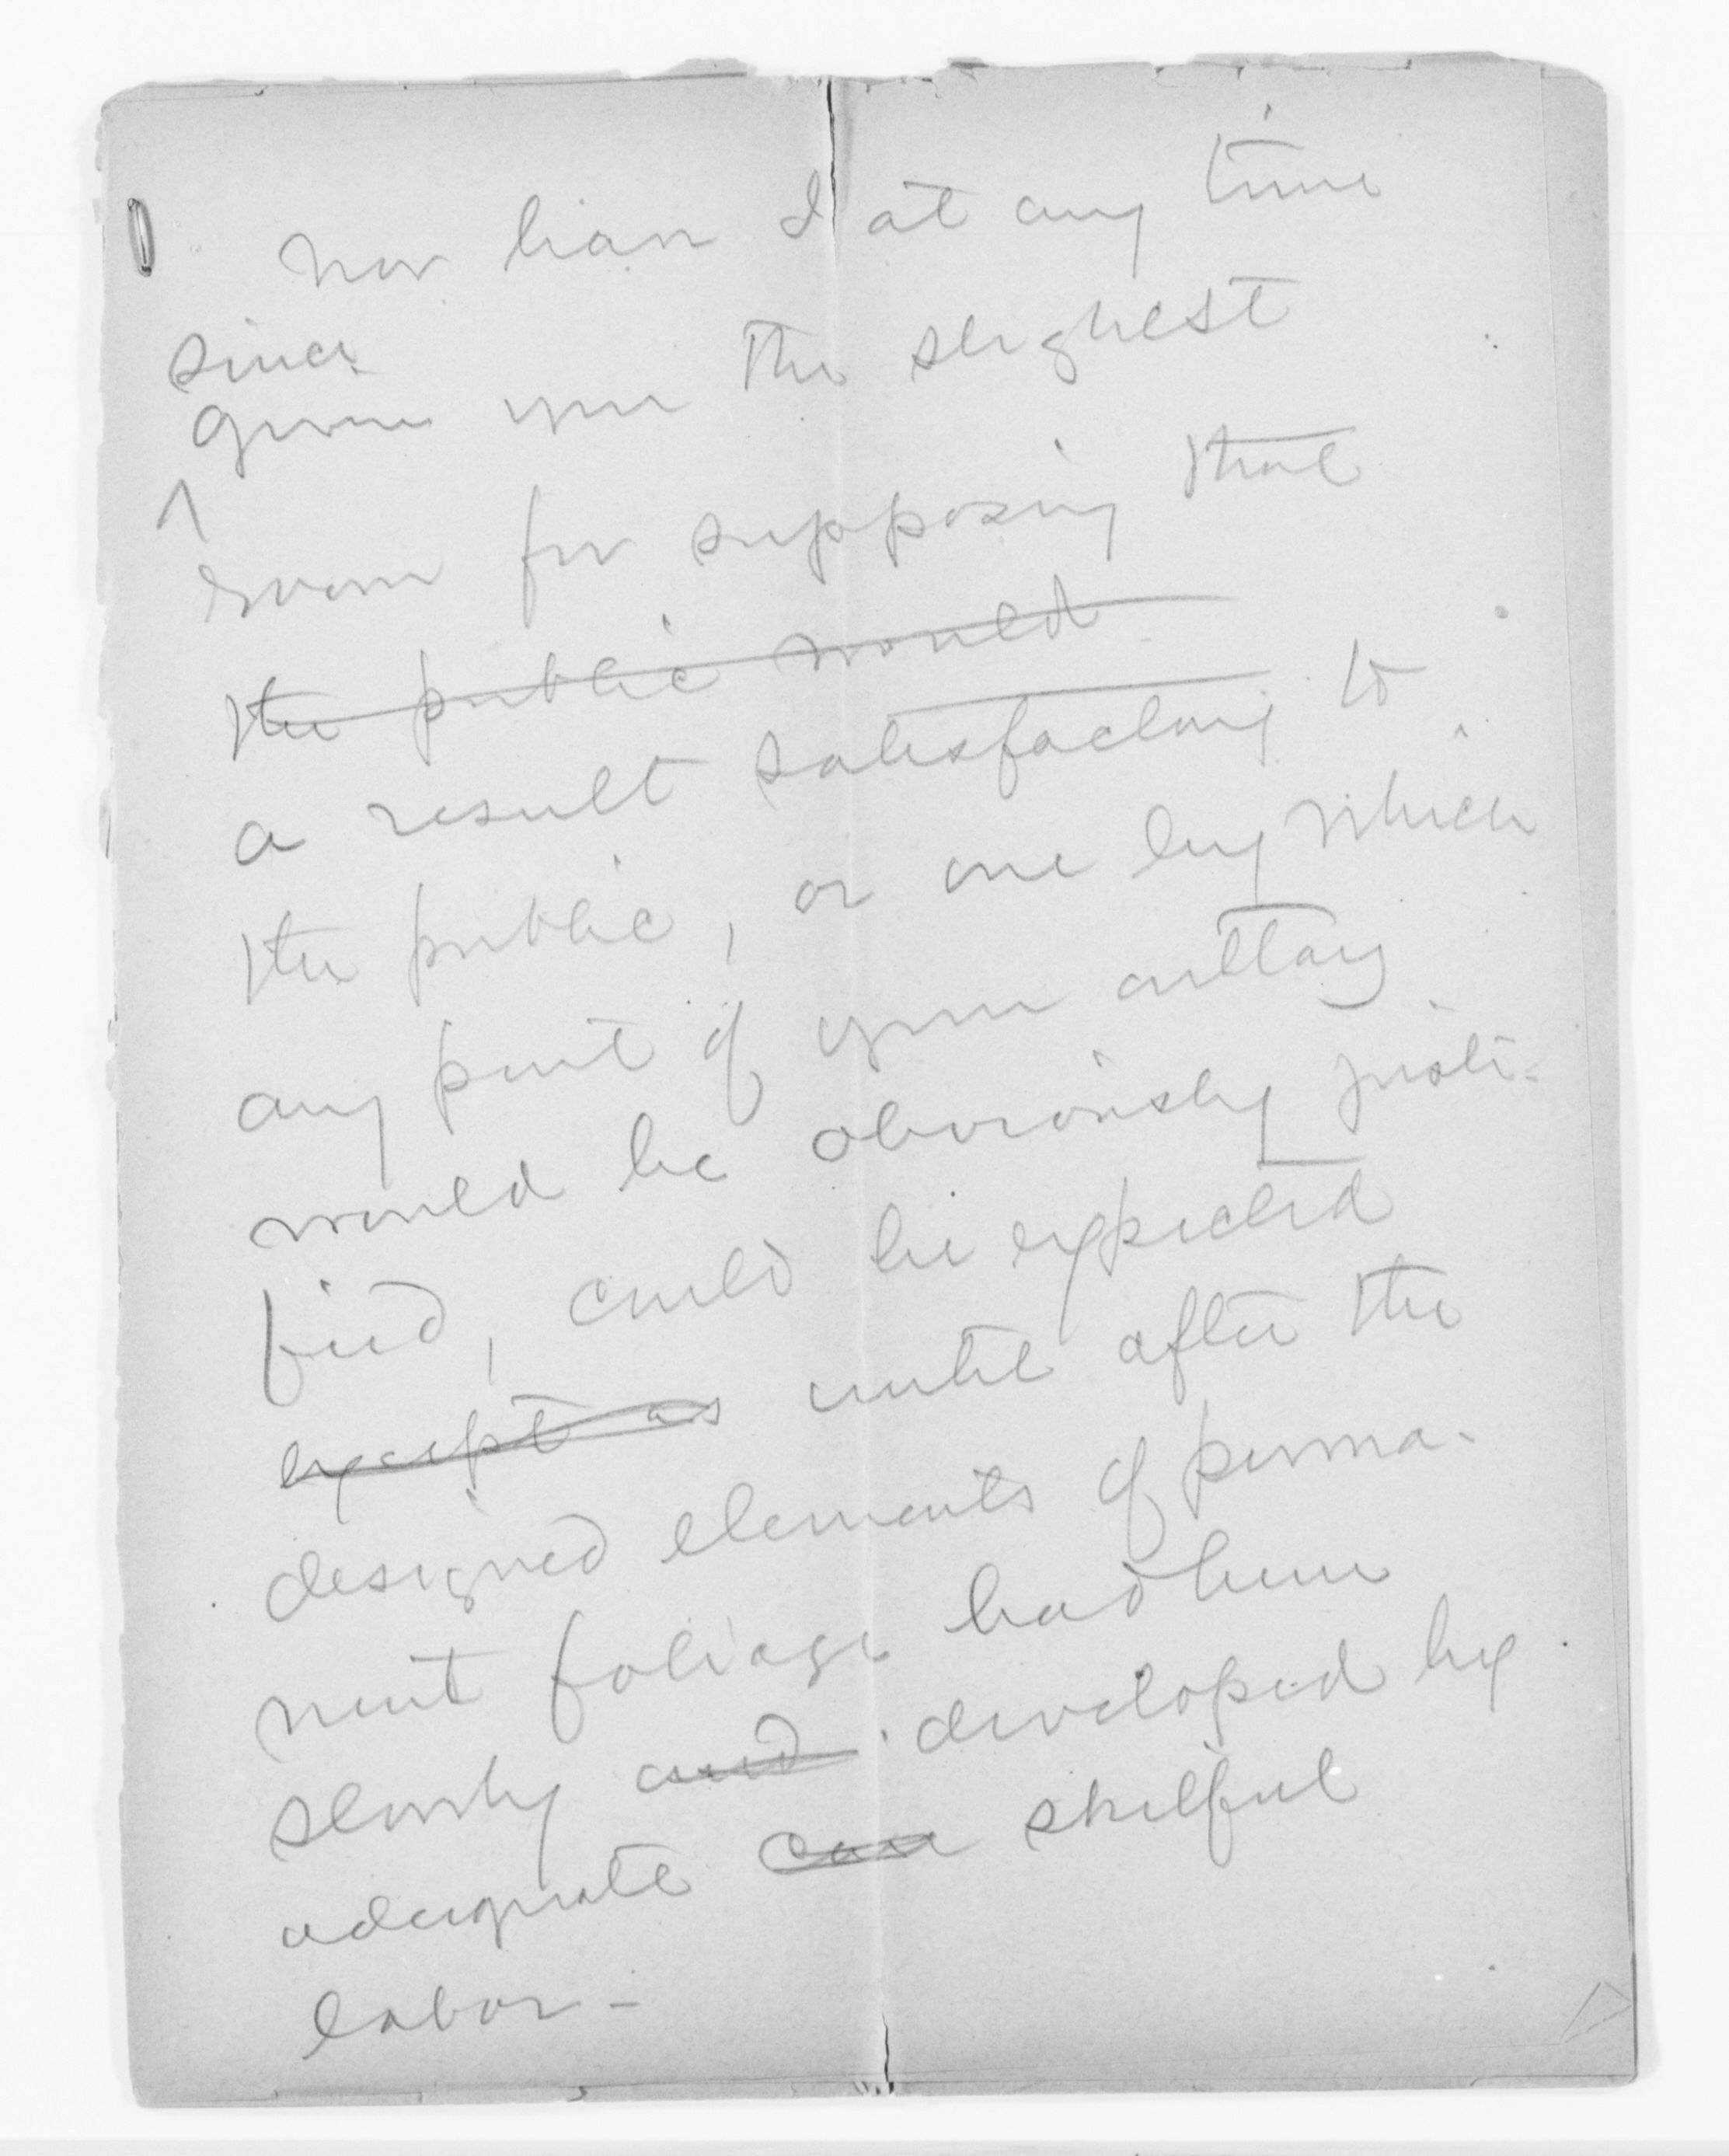 Nor have I at any time
since
given you the slighest
room for supposing that
the public would
a result satisfactory to
the public, or one by which
any part of your outlay
would be obviously justi-
fied, could be expected
except as until after the
designed elements of perma-
nent foliage had been
slowly and developed by
adequate care skilful
labor -